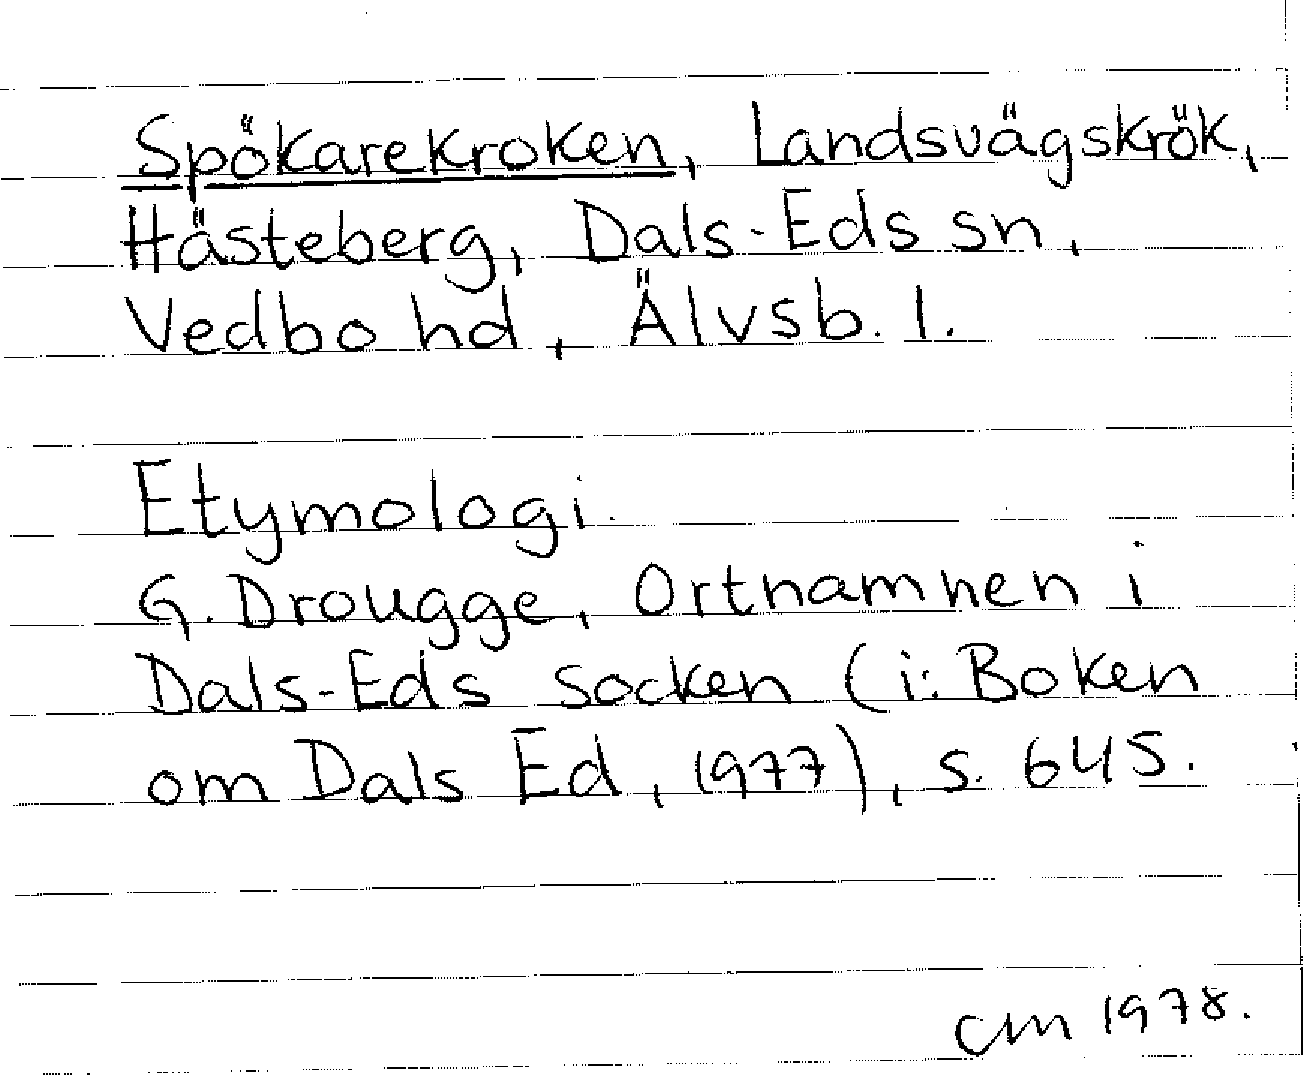 Spökarekroken, Landsvägskrök,
Hästeberg, Dals-Eds sn,
Vedbo hd, Älvsb. l.
Etymologi.
G. Drougge, Ortnamnen i
Dals-Eds socken (i: Boken
om Dals Ed, 1977), s. 645.
CM 1978.